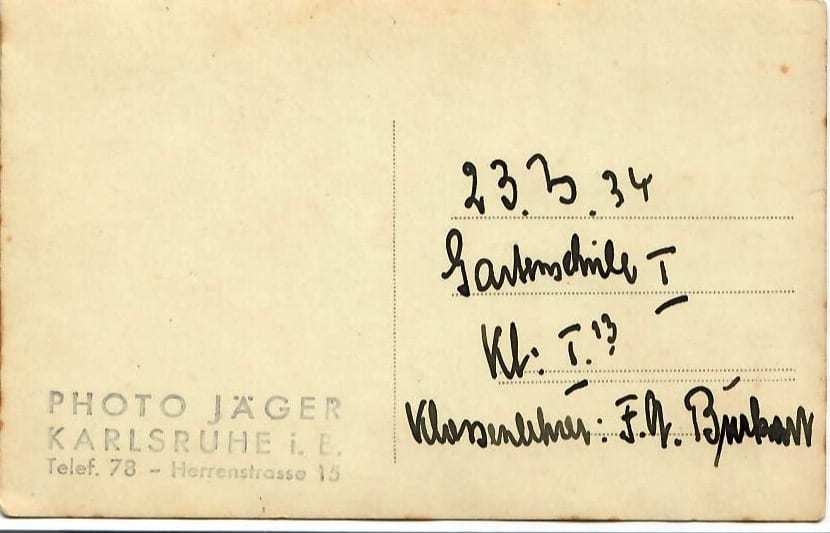 PHOTO JÄGER
KARLSRUHE i. B.
Telef. 78 – Herrenstrasse 15
23.3.34
Gartenschule I
Kl: I.13
Klassenlehrer: F.A. Burkart